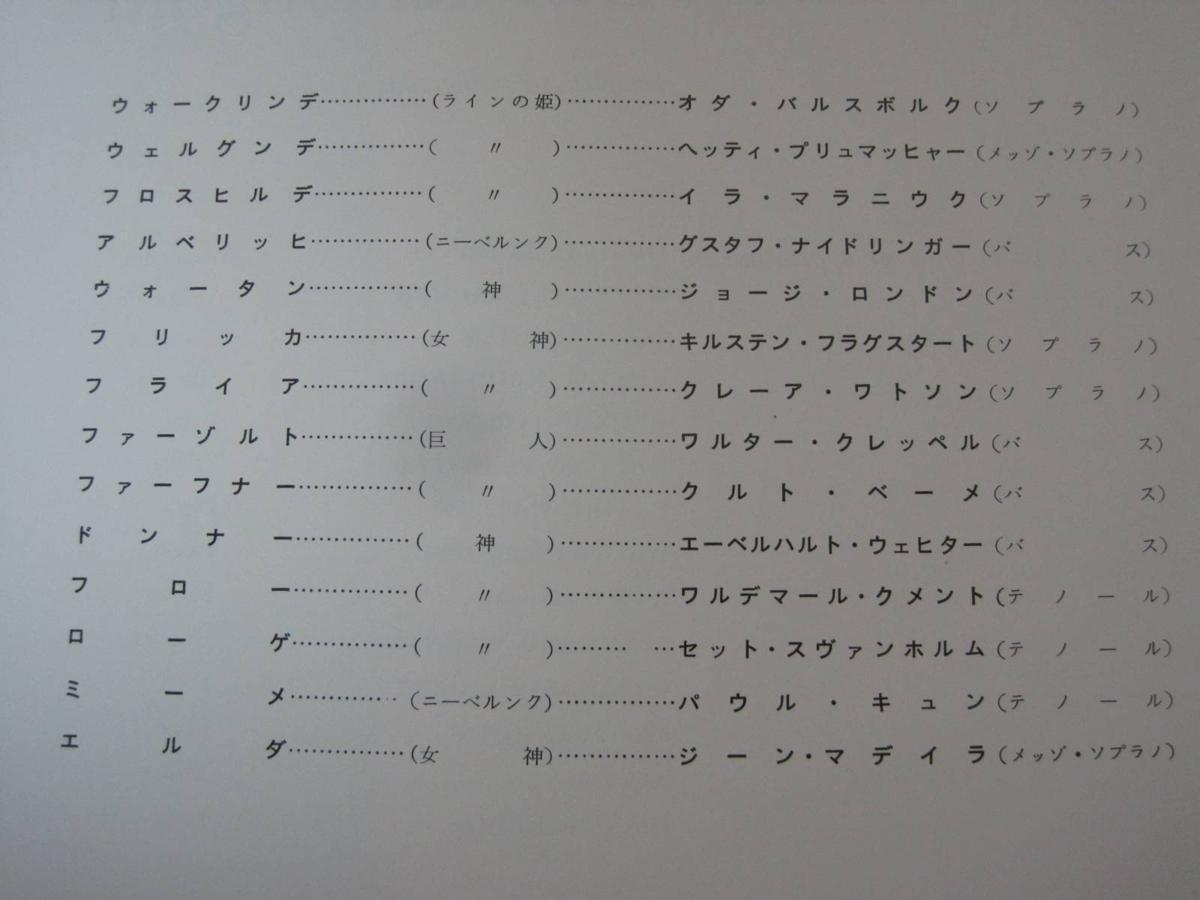 ウォークリンデ……………(ラインの姫)……………オダ・バルスボルク(ソプラノ)
ウェルグンデ……………(〃)……………ヘッティ・プリュマッヒャー(メッゾ・ソプラノ)
フロスヒルデ……………(〃)……………イラ・マラニウク(ソプラノ)
アルベリッヒ……………(ニーベルンク)……………グスタフ・ナイドリンガー(バス)
ウォータン……………(神)……………ジョージ・ロンドン(バス)
フリッカ……………(女神)……………キルステン・フラグスタート(ソプラノ)
フライア……………(〃)……………クレーア・ワトソン(ソプラノ)
ファーゾルト……………(巨人)……………ワルター・クレッペル(バス)
ファーフナー……………(〃)……………クルト・ベーメ(バス)
ドンナー……………(神)……………エーベルハルト・ウェヒター(バス)
フロー……………(〃)……………ワルデマール・クメント(テノール)
ローゲ……………(〃)……… …セット・スヴァンホルム(テノール)
ミーメ……………(ニーベルンク)……………パウル・キュン(テノール)
エルダ……………(女神)……………ジーン・マデイラ(メッゾ・ソプラノ)